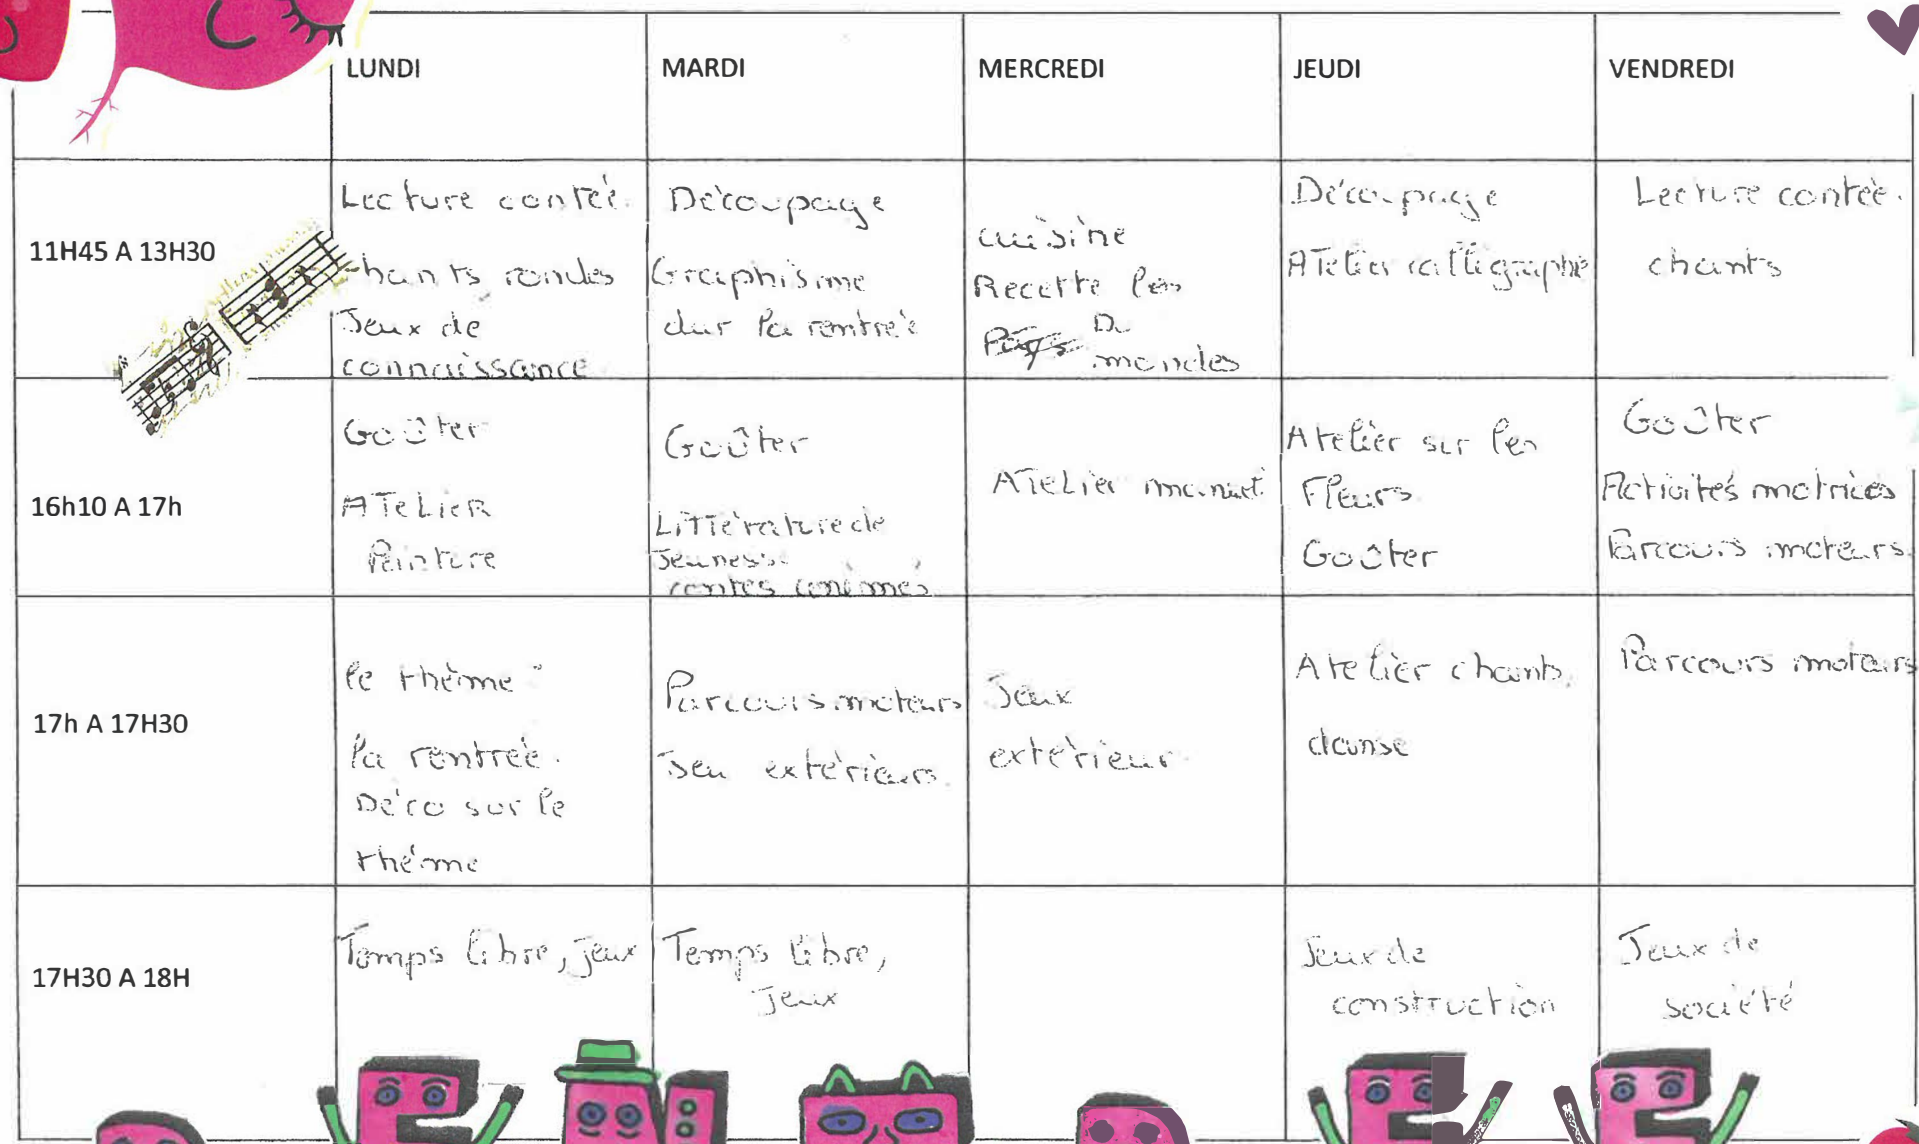 LUNDI MARDI MERCREDI JEUDI VENDREDI
11H45 A 13H30
Lecture contée.
chants rondes
Jeux de
connaissance
Découpage
Graphisme
sur la rentrée
cuisine
Recette les
Pays Du
mondes
Découpage
ATelier calligraphe
Lecture contée.
chants
16h10 A 17h
Goûter
ATELIER
Peinture
Goûter
LiTTérature de
Jeunesse
contes animés
ATELier manuel
Atelier sur les
Fleurs
Goûter
Goûter
Activités motrices
Parcours moteurs
17h A 17H30
le thème
la rentrée.
Déco sur le
thème
Parcours moteurs
Jeu extérieurs
Jeux
extérieur
Atelier chants
danse
Parcours moteurs
17H30 A 18H
Temps libre, jeux
Temps libre,
Jeux
Jeux de
construction
Jeux de
société